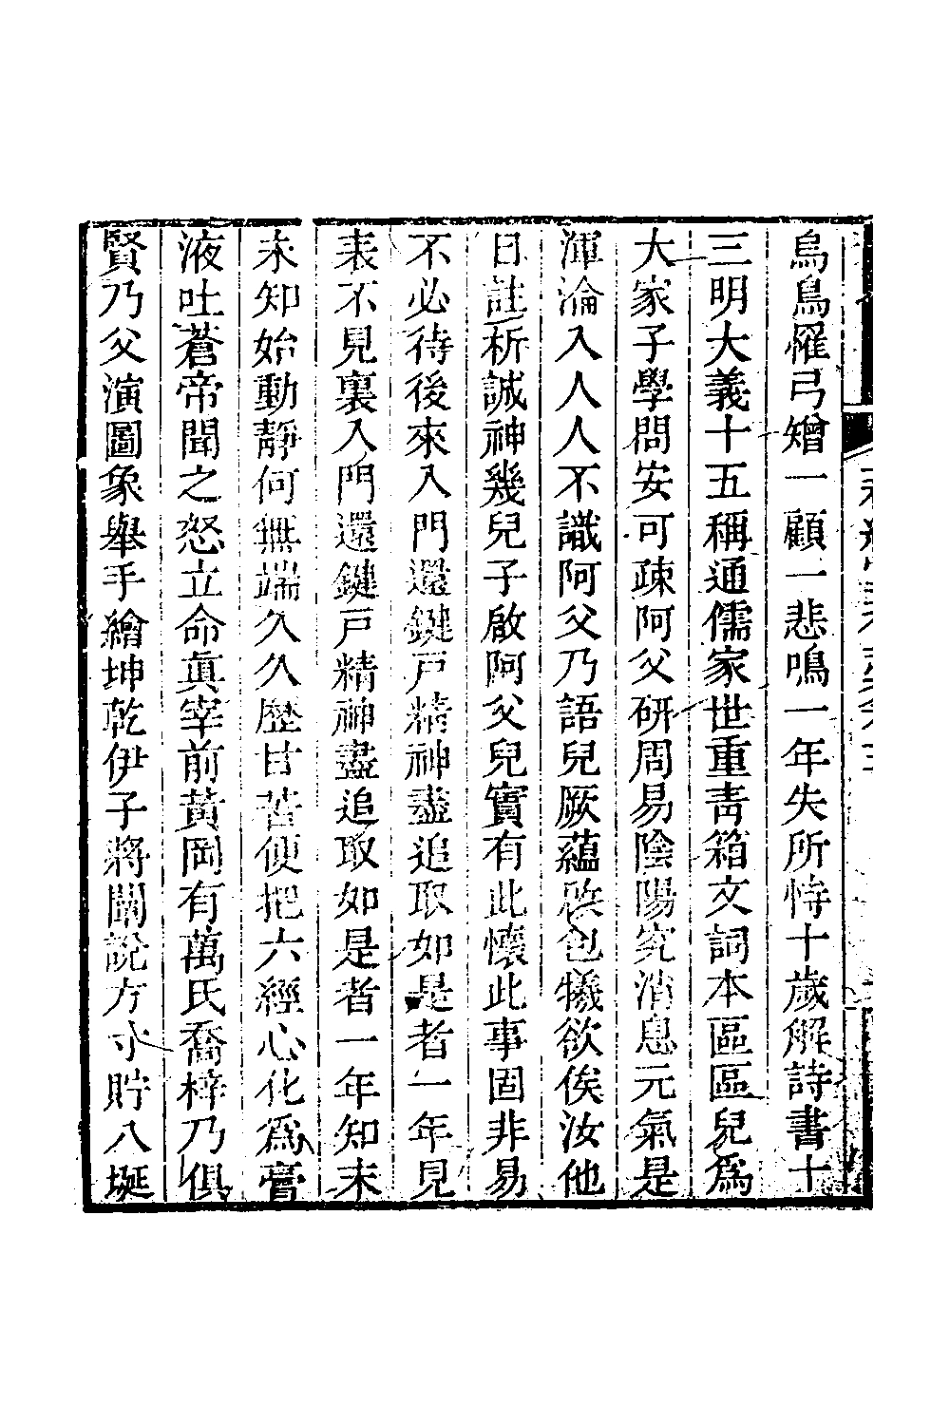 烏鳥罹弓矰一顧一悲鳴一年失所恃十歲解詩書十
三明大義十五稱通儒家世重靑箱文詞本區區兒爲
大家子學問安可疎阿父硏周易陰陽究消息元氣是
渾淪入人人不識阿父乃語兒厥蘊啟包犧欲俟汝他
日註析誠神幾兒子啟阿父兒實有此懷此事固非易
不必待後來入門還鍵戸精神盡追取如是者一年見
表不見裏入門還鍵戸精神盡追取如是者一年知末
未知始動靜何無端久久歷甘苦便把六經心化爲膏
液吐蒼帝聞之怒立命眞宰前黃岡有萬氏喬梓乃俱
賢乃父演圖象舉手繪坤乾伊子將闡說方寸貯八埏